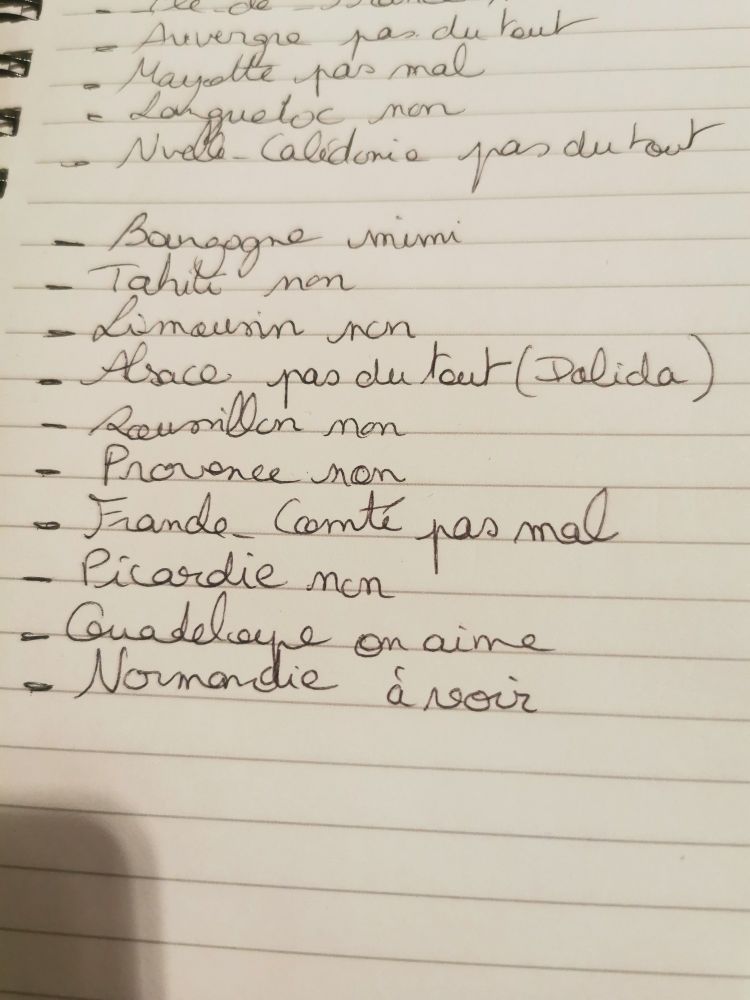 - Île-de-France
- Auvergne pas du tout
- Mayotte pas mal
- Languedoc non
- Nvelle-Calédonie pas du tout
- Bourgogne mimi
- Tahiti non
- Limousin non
- Alsace pas du tout (Dalida)
- Roussillon non
- Provence non
- Franche-Comté pas mal
- Picardie non
- Guadeloupe on aime
- Normandie à revoir